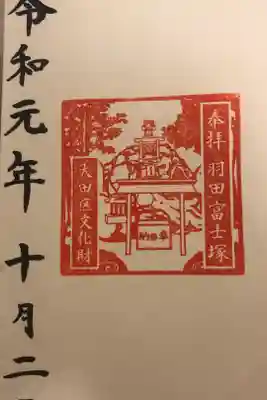 奉拝 羽田富士塚
大田区文化財
奉納
令和元年 十月二